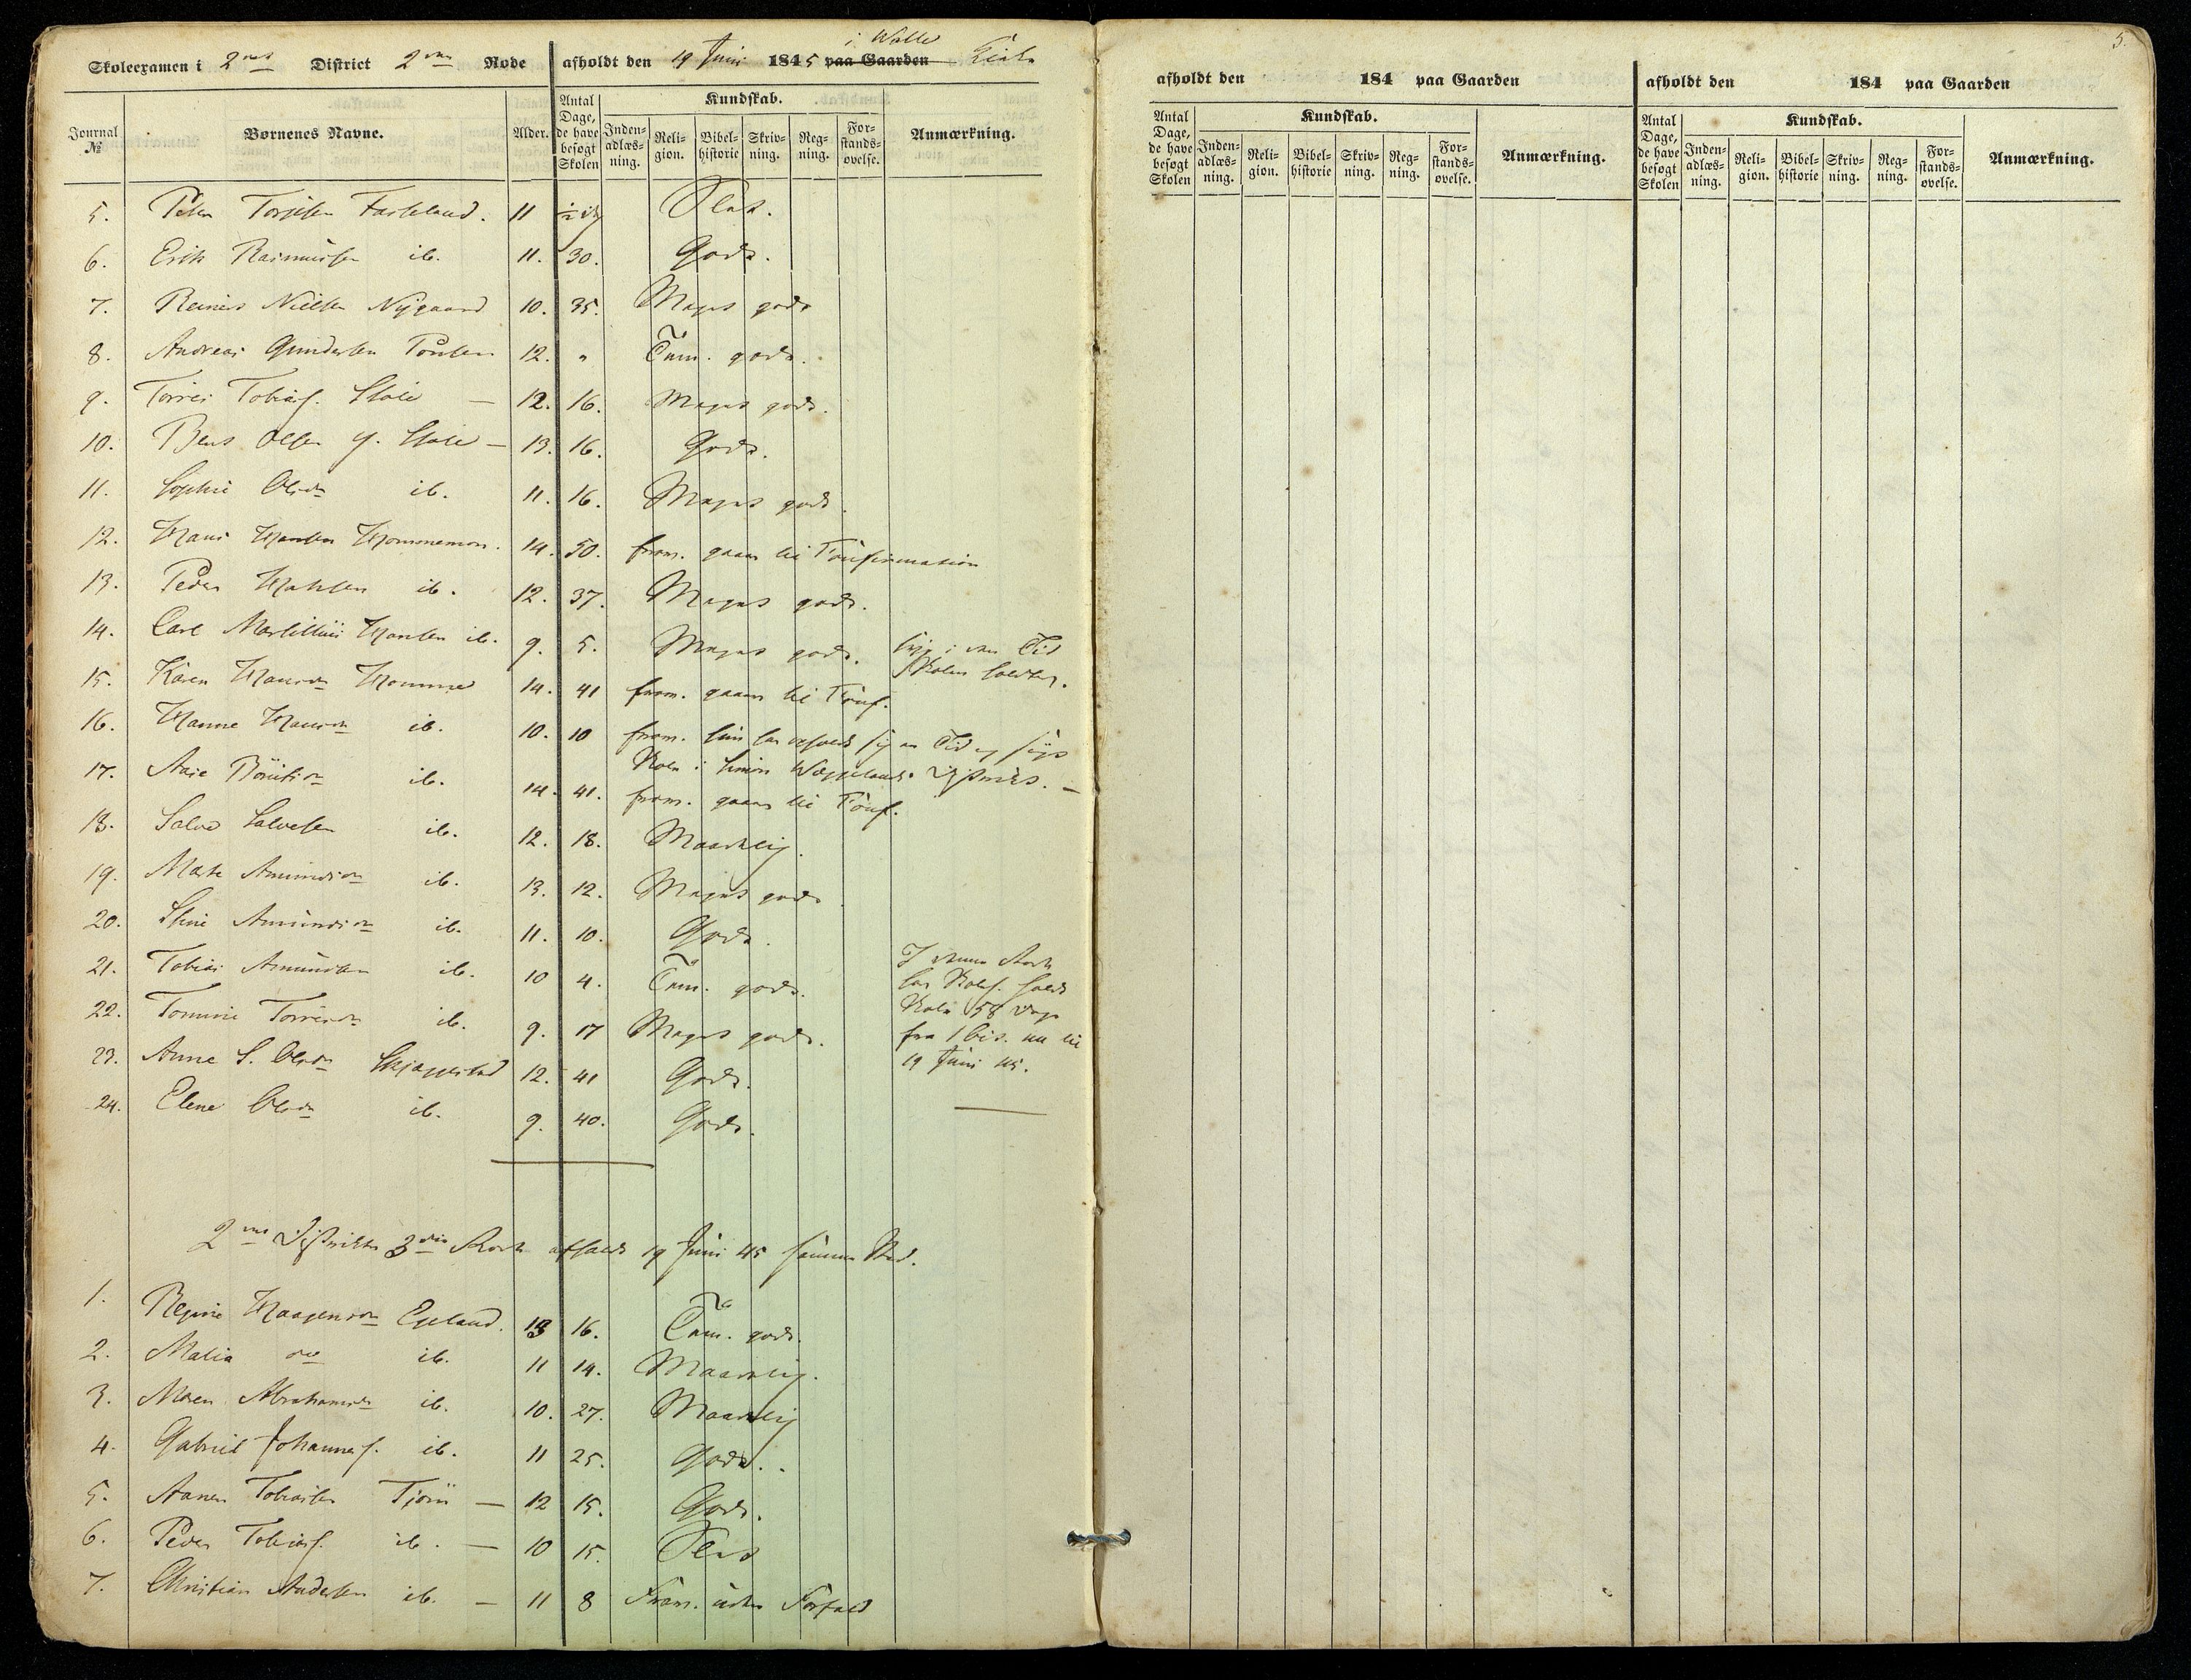 Skoleexamen i 2det District 2den Rode afholdt den 19 Juni 1845 paa Gaarden i Walle Kirke
Journal № Børnenes Navne. Alder. Antal Dage, de have besøgt Skolen Kundskab. Inden-adlæs-ning. Reli-gion. Bibel-historie Skriv-ning. Reg-ning. For-stands-øvelse. Anmærkning.
5. Peder Torjusen Fasseland. 11 ½ Slet.
6. Erik Rasmussen ib. 11. 30. Godt.
7. Reinert Nielsen Nygaard 10. 35. Meget godt
8. Andreas Gundersen 12. " Tem. godt.
9. Torres Tobiass. Stole — 12. 16. Meget godt.
10. Bent Olsen y. Stole — 13. 16. Godt.
11. Sophie Olsdr ib. 11. 16. Meget godt.
12. Hans Hansen Hommemoen. 14. 50. from. gaaer til Confirmation
13. Peder Hansen ib. 12. 37. Meget godt.
14. Carl Hansen ib. 9. 5. Meget godt. syg i den Tid Skolen holdtes.
15. Karen Hansdr Homme 14. 41 from. gaaer til Conf.
16. Hanne Hansdr ib. 10. 10 from. hun har opholdt sig en Tid og søgt
Skole i District. —
17. Asie ib. 14. 41. from. gaaer til Conf.
18. Salve Salvesen ib. 12. 18. Maadelig.
19. Marte Amundsdr ib. 13. 12. Meget godt
20. Stine Amundsdr ib. 11. 10. Godt.
21. Tobias Amundsen ib. 10 4. Tem. godt.
I denne Rode
har Skoleh. holdt
Skole 58 Dage
fra til
19 Juni 45.
22. Tomine Torresdr ib. 9. 17 Meget godt.
23. Anne S. Olsdr Skjæggestad 12. 41 Godt.
24. Elene Olsdr ib. 9. 40. Godt.
2det Districts 3die Rode afholdt 19 Juni 45 samme Sted.
1. Regine Haagensdr Egeland. 13 16. Tem. godt.
2. Malia do ib. 11 14. Maadelig.
3. Maren Abrahamsdr ib. 10. 27. Maadelig
4. Gabriel Johanness. ib. 11 25. Godt.
5. Aanen Tobiassen Tjom — 12 15. Godt.
6. Peder Tobiass. ib. — 10 15. Slet
7. Christian Andersen ib. — 11 8 From. uden Forfald
5.
afholdt den 184 paa Gaarden
Antal Dage, de have besøgt Skolen Kundskab. Inden-adlæs-ning. Reli-gion. Bibel-historie Skriv-ning. Reg-ning. For-stands-øvelse. Anmærkning.
afholdt den 184 paa Gaarden
Antal Dage, de have besøgt Skolen Kundskab. Inden-adlæs-ning. Reli-gion. Bibel-historie Skriv-ning. Reg-ning. For-stands-øvelse. Anmærkning.